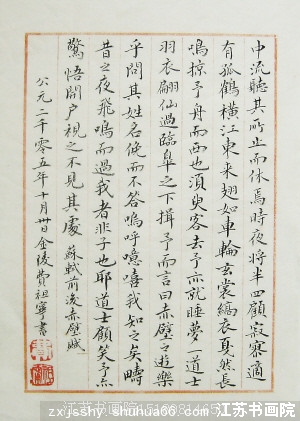 中流聽其所止而休焉時夜將半四顧寂寥適
有孤鶴橫江東來翅如車輪玄裳縞衣戛然長
鳴掠予舟而西也須臾客去予亦就睡夢一道士
羽衣翩仙過臨皋之下揖予而言曰赤壁之遊樂
乎問其姓名俛而不答嗚呼噫嘻我知之矣疇
昔之夜飛鳴而過我者非子也耶道士顧笑予亦
驚悟開戶視之不見其處 蘇軾前後赤壁賦
公元二千零五年十月卅日金陵費祖寧書
江苏书画院
zxjsshy.shuhua66.com 江苏书画院